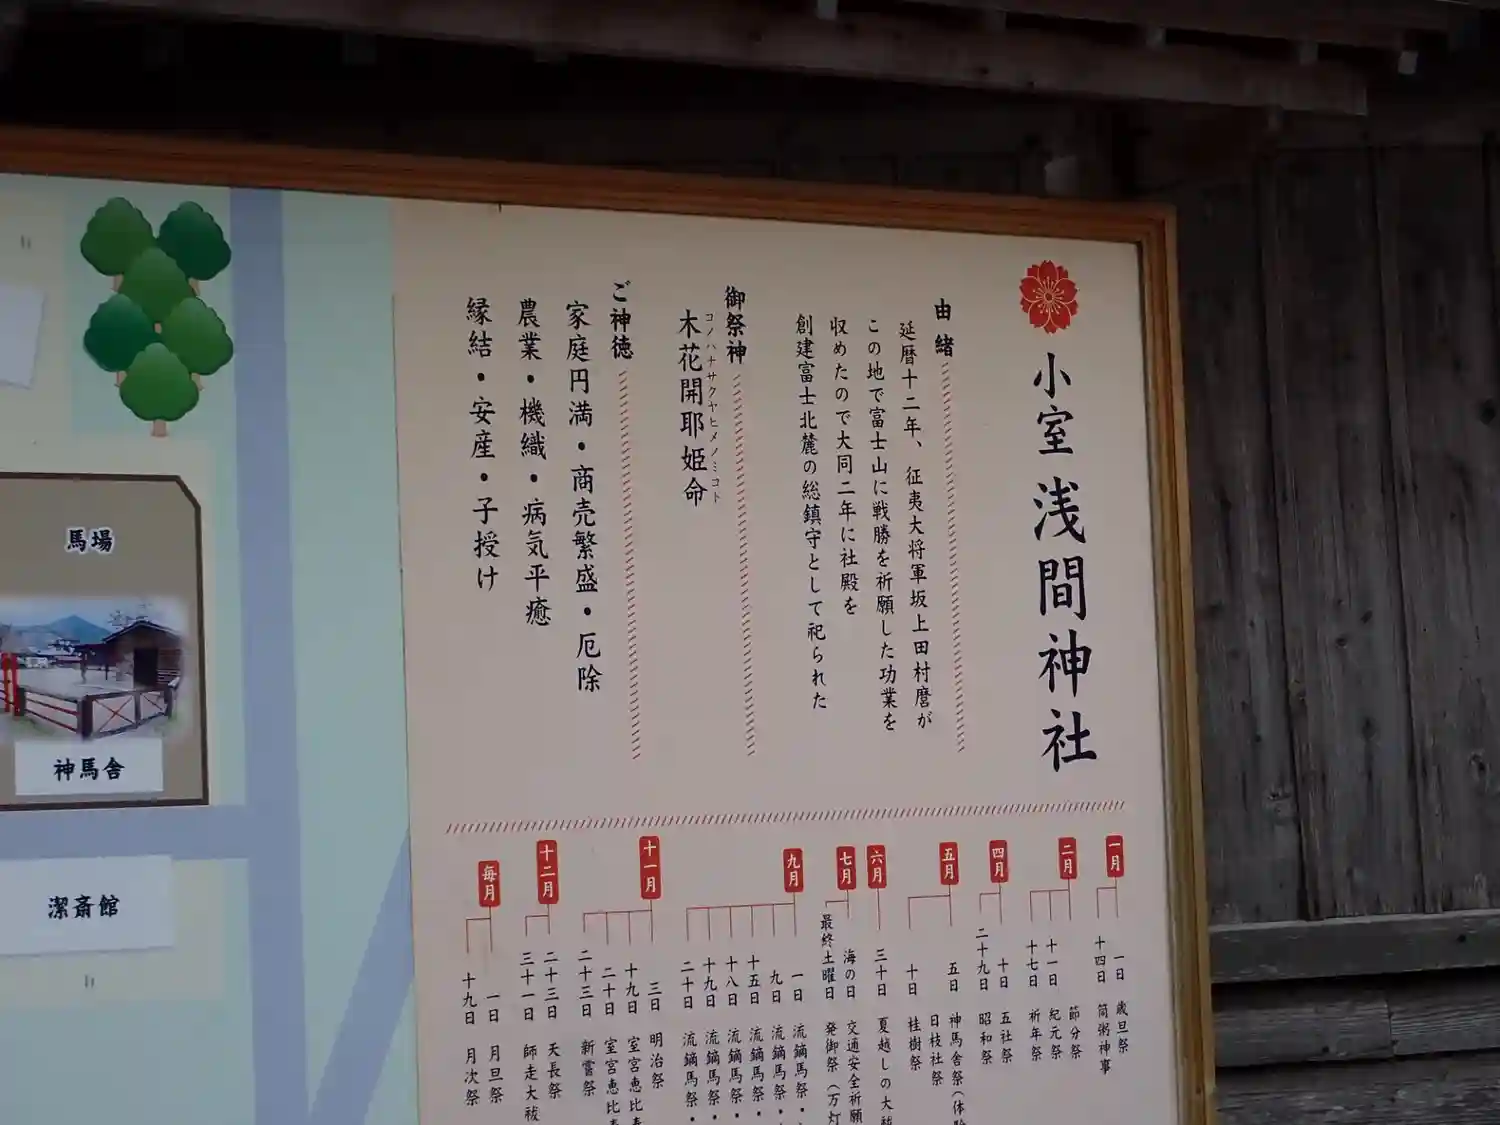 小室浅間神社
由緒
延暦十二年、征夷大将軍坂上田村麿が
この地で富士山に戦勝を祈願した功業を
収めたので大同二年に社殿を
創建富士北麓の総鎮守として祀られた
御祭神
木花開耶姫命
コノハナサクヤヒメノミコト
ご神徳
家庭円満・商売繁盛・厄除
農業・機織・病気平癒
縁結・安産・子授け
一月
一日 歳旦祭
十四日 筒粥神事
二月
節分祭
十一日 紀元祭
十七日 祈年祭
四月
十日 五社祭
二十九日 昭和祭
五月
五日 神馬舎祭(体験
日枝社祭
十日 桂樹祭
六月
三十日 夏越しの大祓
七月
海の日 交通安全祈願
最終土曜日 発御祭(万灯
九月
一日 流鏑馬祭・
九日 流鏑馬祭・
十五日 流鏑馬祭・
十八日 流鏑馬祭・
十九日 流鏑馬祭・
二十日 流鏑馬祭・
十一月
三日 明治祭
十九日 室宮恵比寿
二十日 室宮恵比寿
二十三日 新嘗祭
十二月
二十三日 天長祭
三十一日 師走大祓
毎月
一日 月旦祭
十九日 月次祭
馬場
神馬舎
潔斎館